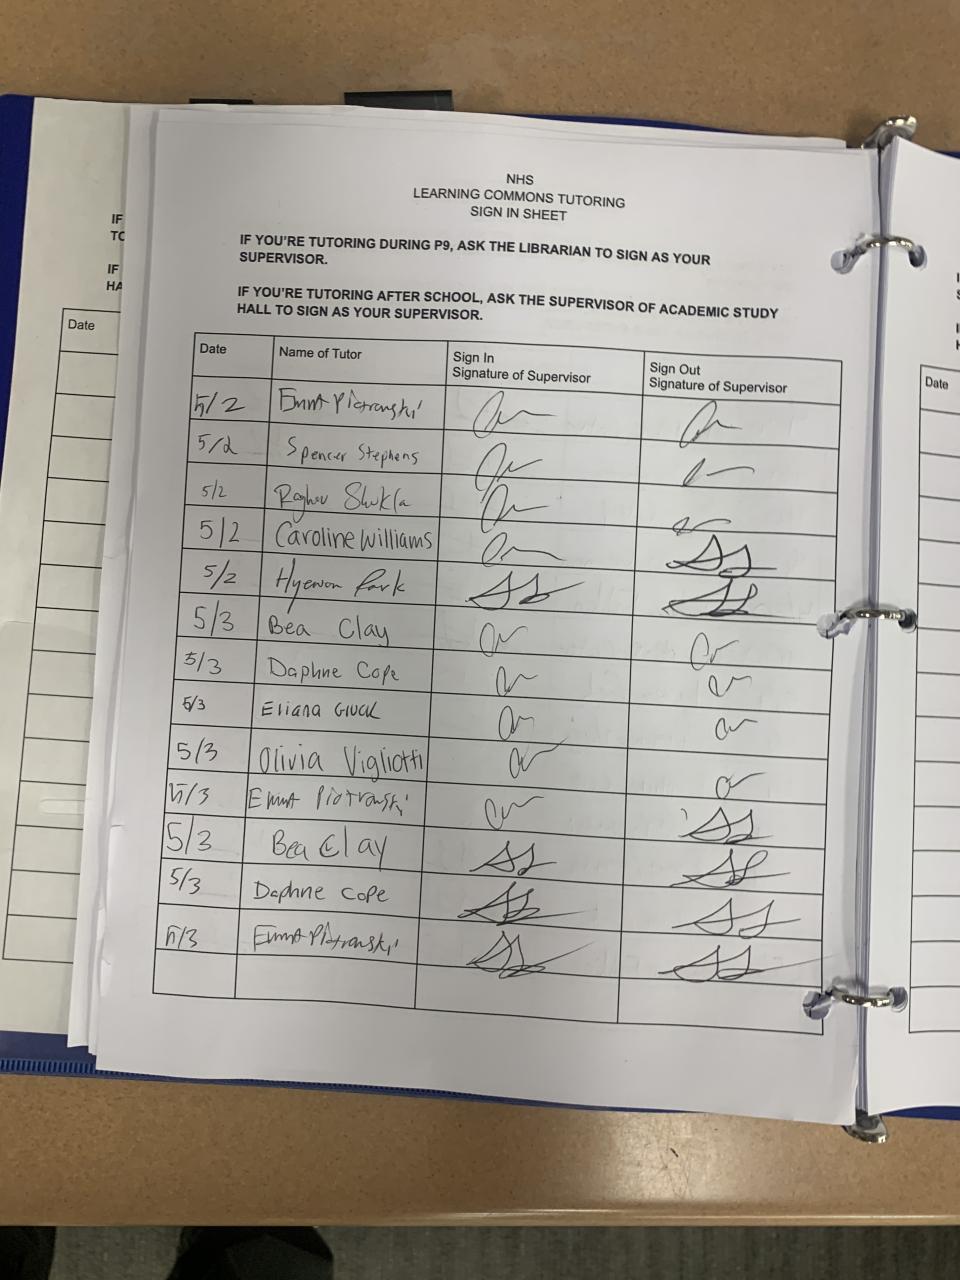 NHS
LEARNING COMMONS TUTORING
SIGN IN SHEET
IF YOU'RE TUTORING DURING P9, ASK THE LIBRARIAN TO SIGN AS YOUR
SUPERVISOR.
IF YOU'RE TUTORING AFTER SCHOOL, ASK THE SUPERVISOR OF ACADEMIC STUDY
HALL TO SIGN AS YOUR SUPERVISOR.
Date Name of Tutor Sign In Signature of Supervisor Sign Out Signature of Supervisor
5/2 Emma Piotrowski
5/2 Spencer Stephens
5/2 Raghav Shukla
5/2 Caroline Williams
5/2 Hyewon Park
5/3 Bea Clay
5/3 Daphne Cope
5/3 Eliana Gluck
5/3 Olivia Vigliotti
5/3 Emma Piotrowski
5/3 Bea Clay
5/3 Daphne Cope
5/3 Emma Piotrowski
IF
TO
IF
HA
Date
Date